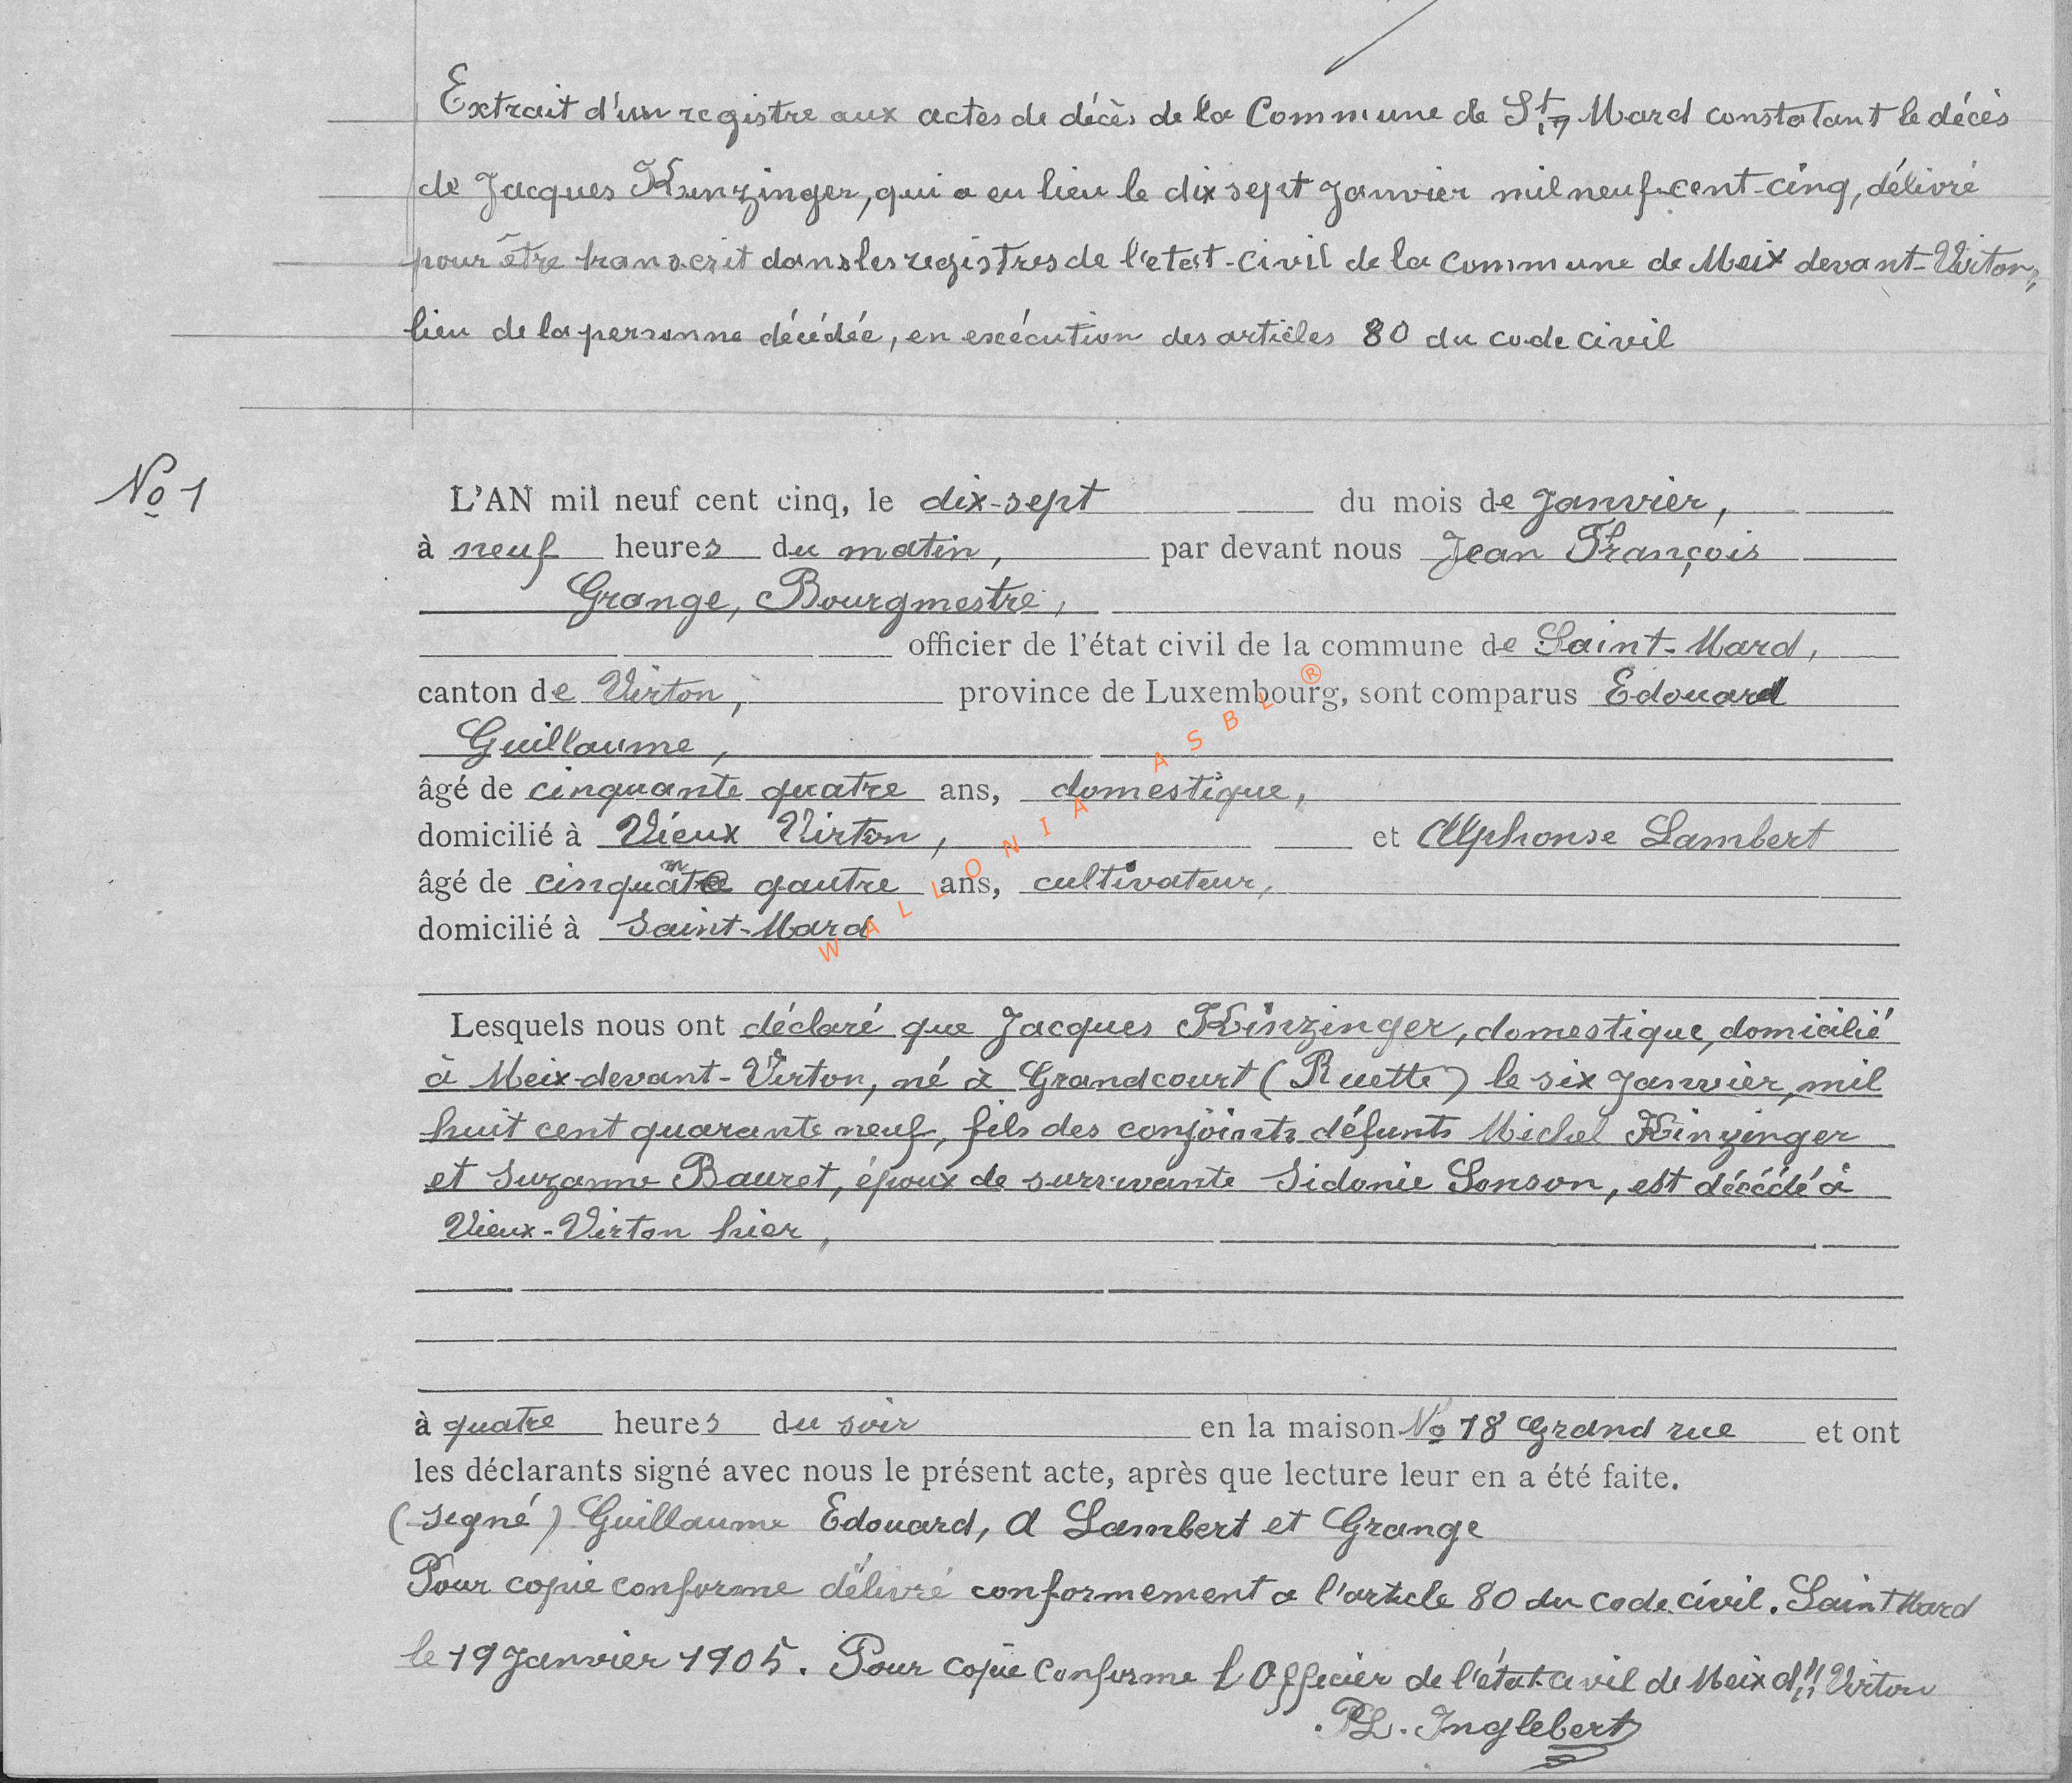 Extrait d'un registre aux actes de décès de la Commune de St Mard constatant le décès
de Jacques Kunzinger, qui a eu lieu le dix sept Janvier mil neuf-cent-cinq, délivré
pour être transcrit dans les registres de l'etat-civil de la commune de Meix devant-Virton,
lieu de la personne décédée, en exécution des articles 80 du code civil
No 1
L'AN mil neuf cent cinq, le dix-sept du mois de Janvier,
à neuf heures du matin, par devant nous Jean François
Grange, Bourgmestre,
officier de l'état civil de la commune de Saint-Mard,
canton de Virton, province de Luxembourg, sont comparus Edouard
Guillaume,
âgé de cinquante quatre ans, domestique,
domicilié à Vieux Virton, et Alphonse Lambert
âgé de cinquante qautre ans, cultivateur,
domicilié à Saint-Mard
WALLONIA ASBL ®
Lesquels nous ont déclaré que Jacques Kinzinger, domestique, domicilié
à Meix-devant-Virton, né à Grandcourt (Ruette) le six Janvier, mil
huit cent quarante neuf, fils des conjoints défunts Michel Kinzinger
et Suzanne Bauret, époux de survivante Sidonie Sonson, est décédé à
Vieux-Virton hier,
à quatre heures du soir en la maison No 18 Grand rue et ont
les déclarants signé avec nous le présent acte, après que lecture leur en a été faite.
(signé) Guillaume Edouard, A Lambert et Grange
Pour copie conforme délivré conformement a l'article 80 du code civil. Saint Mard
le 19 Janvier 1905. Pour copie conforme l Officier de l'état civil de Meix dt Virton
PL. Inglebert